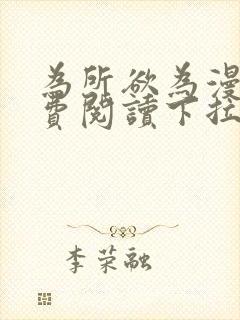 為所欲為漫
費閱讀下拉
李荣融